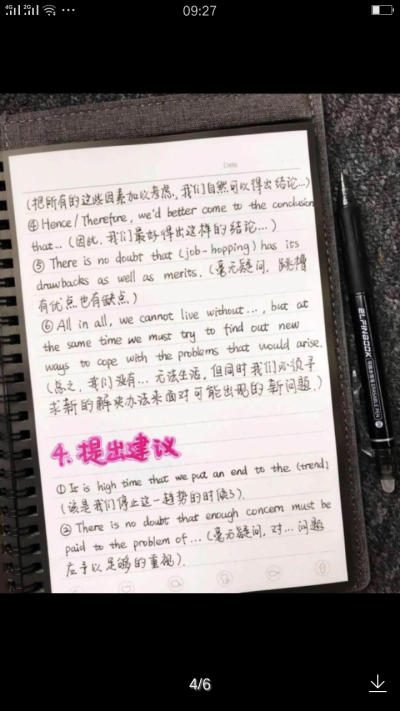 4G 2G ... 09:27
Date
(把所有的这些因素加以考虑,我们自然可以得出结论...)
④ Hence/Therefore, we'd better come to the conclusion
that... (因此,我们最好得出这样的结论...)
⑤ There is no doubt that (job-hopping) has its
drawbacks as well as merits. (毫无疑问,跳槽
有优点也有缺点.)
⑥ All in all, we cannot live without..., but at
the same time we must try to find out new
ways to cope with the problems that would arise.
(总之,我们没有...无法生活,但同时我们必须寻
求新的解决办法来面对可能出现的新问题.)
4.提出建议
① It is high time that we put an end to the (trend)
(该是我们停止这一趋势的时候了).
② There is no doubt that enough concern must be
paid to the problem of... (毫无疑问,对...问题
应予以足够的重视).
4/6